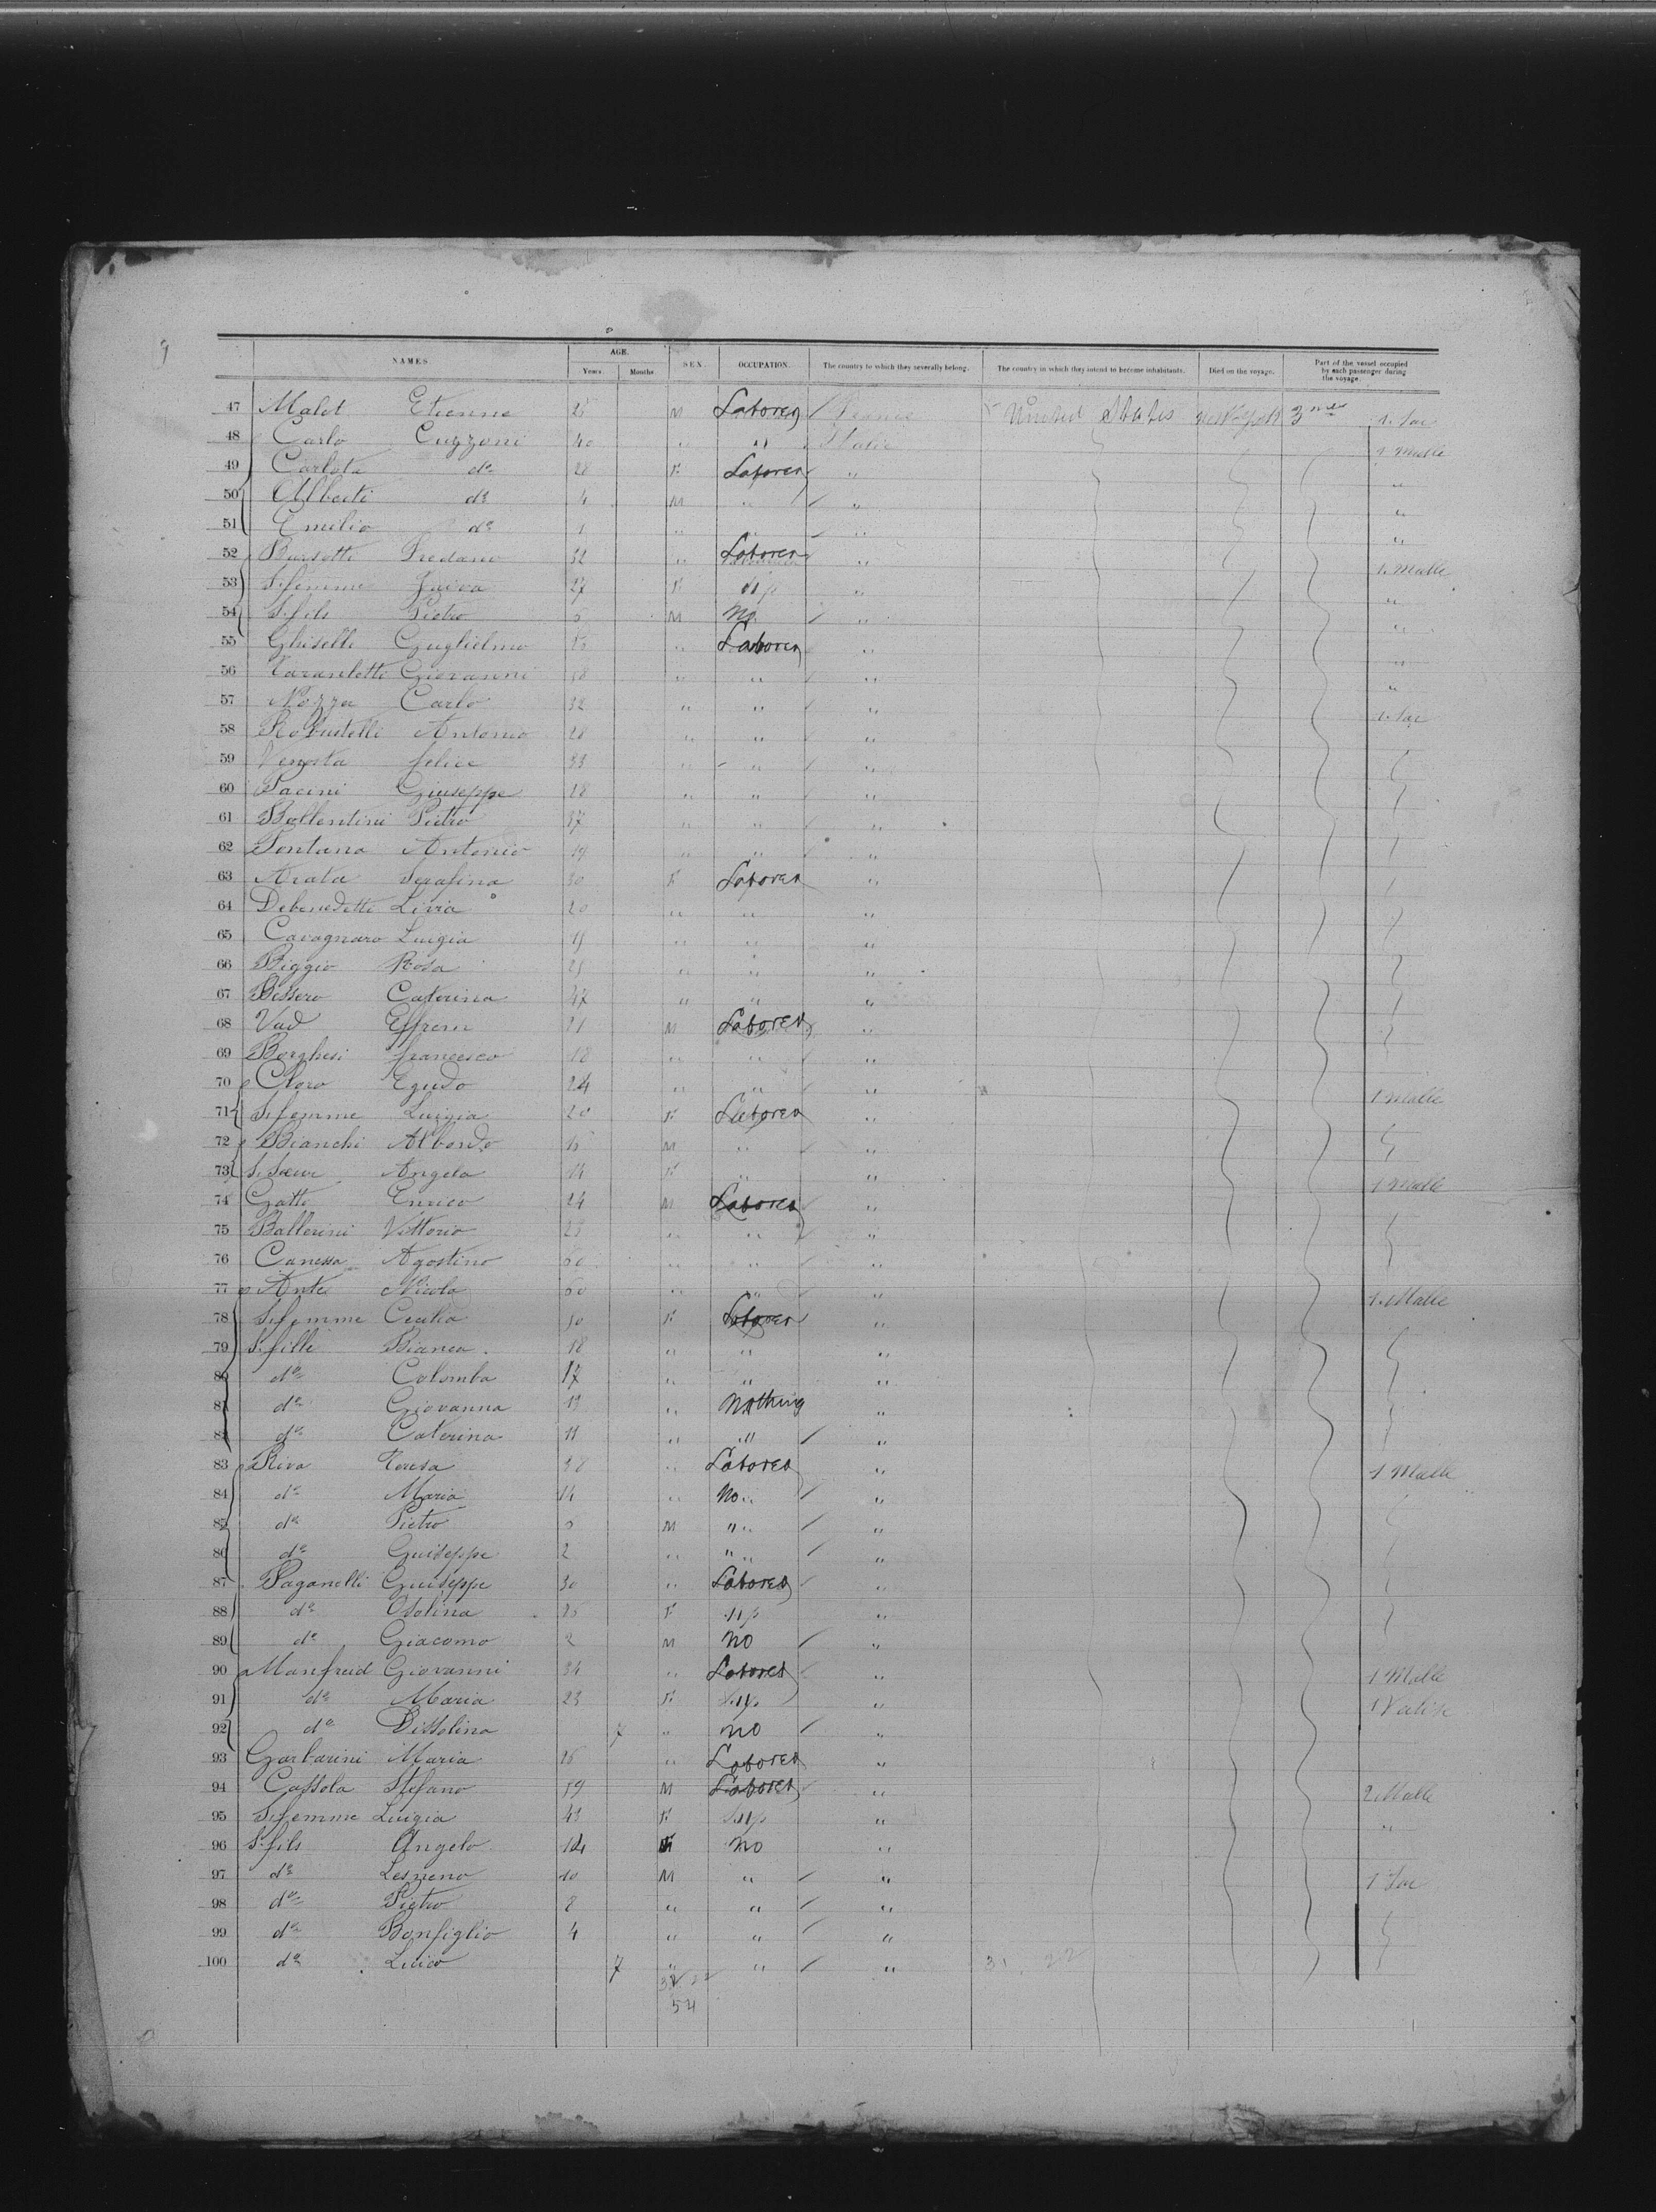 NAMES. AGE. SEX. OCCUPATION. The country to which they severally belong. The country in which they intend to become inhabitants. Died on the voyage. Part of the vessel occupied by each passenger during the voyage.
Years. Months.
47 Malet Etienne M Laborer France United States New York 3me 1. Sac
48 Carlo Cuzzoni 40 " " Italie 1 Malle
49 Carlota do 28 F Laborer " "
50 Alberti do 4 M " " "
51 Emilio do 1 " " "
52 32 " Laborer " 1. Malle
53 S. femme 27 F " "
54 S. fils Pietro M No " "
55 Ghiselli Guglielmo " Laborer " "
56 Giovanni " " " "
57 Nozza Carlo 32 " " " 1. Sac
58 Robustelli Antonio 28 " " "
59 Venosta felice 33 " " "
60 Pacini Giuseppe 28 " " "
61 Bollentini Pietro 37 " " "
62 Fontana Antonio 19 " " "
63 Arata Serafina 30 F Laborer "
64 Debenedetti Livia 20 " " "
65 Cavagnaro Luigia 19 " " "
66 Biggio Rosa " " "
67 Bessero Caterina 47 " " "
68 Vad Effrem M Laborer "
69 Borghesi francesco 18 " " "
70 Cloro Egido 24 " " " 1 Malle
71 S. femme Luigia 20 F Laborer "
72 Bianchi M " "
73 S. Soeur Angela 14 F " " 1 Malle
74 Gatti Enrico 24 M Laborer "
75 Ballerini Vittorio 23 " " "
76 Canessa Agostino 60 " " "
77 Ante Nicola 60 " " " 1. Malle
78 S. femme Cecilia 50 F Laborer "
79 S. fille Bianca 18 " " "
80 do Colomba 17 " " "
81 do Giovanna 13 " Nothing "
82 do Caterina 11 " " "
83 Riva Teresa 38 " Laborer " 1 Malle
84 do Maria 14 " No "
85 do Pietro M " "
86 do Guiseppe 2 " " "
87 Paganelli Guiseppe 30 " Laborer "
88 do F "
89 do Giacomo 2 M No "
90 Manfreid Giovanni 34 " Laborer " 1 Malle
91 do Maria 23 F " 1 Valise
92 do 7 " no "
93 Garbarini Maria " Laborer "
94 Cassola Stefano 59 M Laborer " 2 Malle
95 S. femme Luigia 43 F " "
96 S. fils Angelo 14 No "
97 do 10 M " " 1 Sac
98 do Pietro 8 " " "
99 do Bonfiglio 4 " " "
100 do 7 " " " 31. 22
54